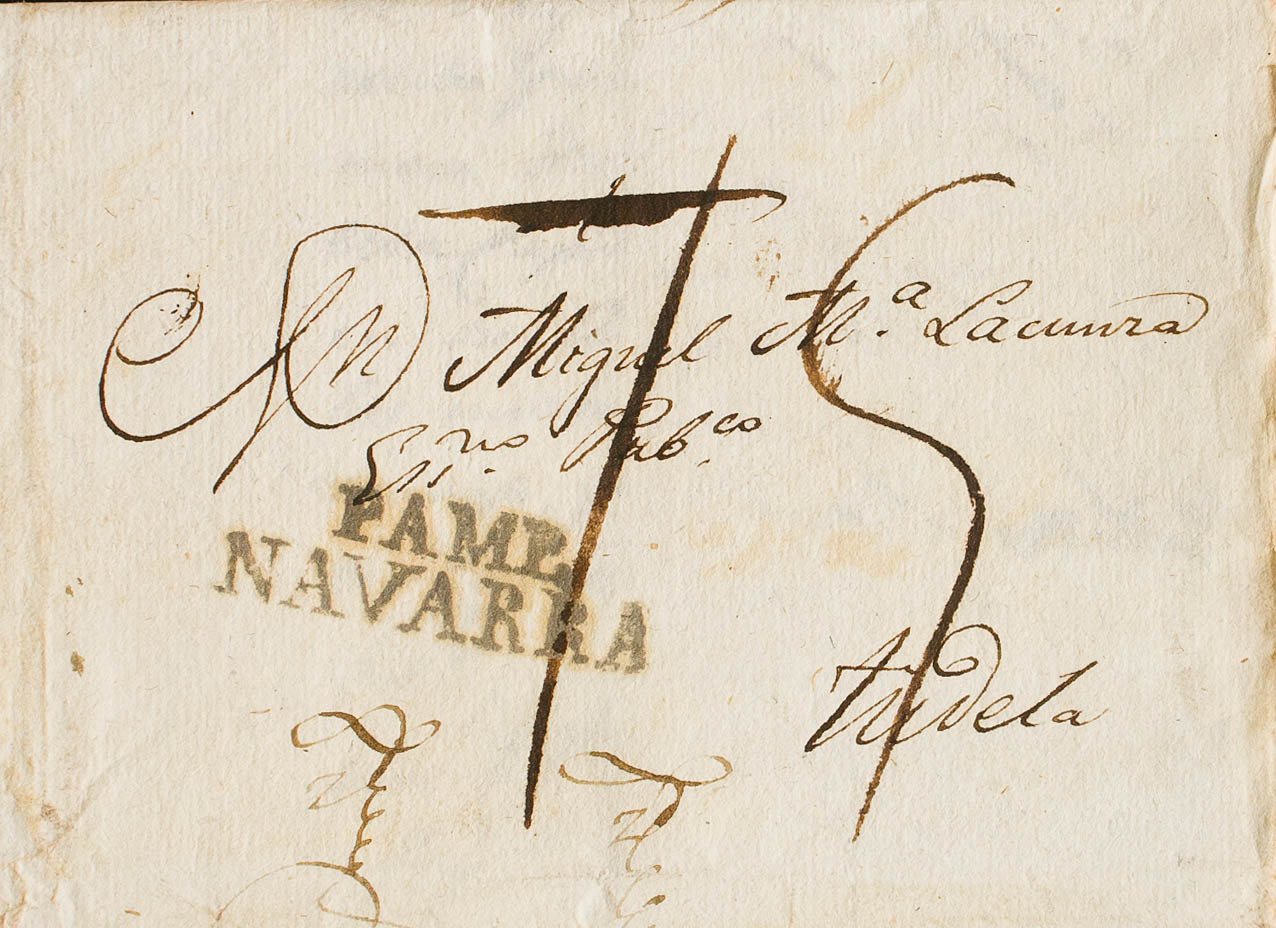 Dn Miguel M.ª Lacunza
Ess.no Pub.co
PAMP
NAVARRA
Tudela
75